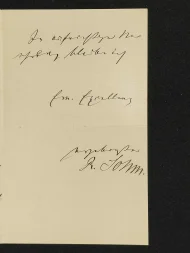 In aufrichtiger Ver
ehrung bleibe ich
Ew. Excellenz
ergebenster
R. Sohm.